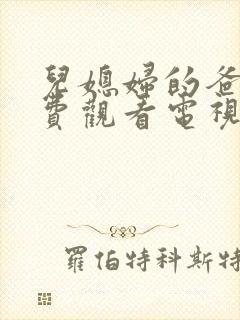 兒媳婦的爸
費觀看電視
羅伯特科斯特